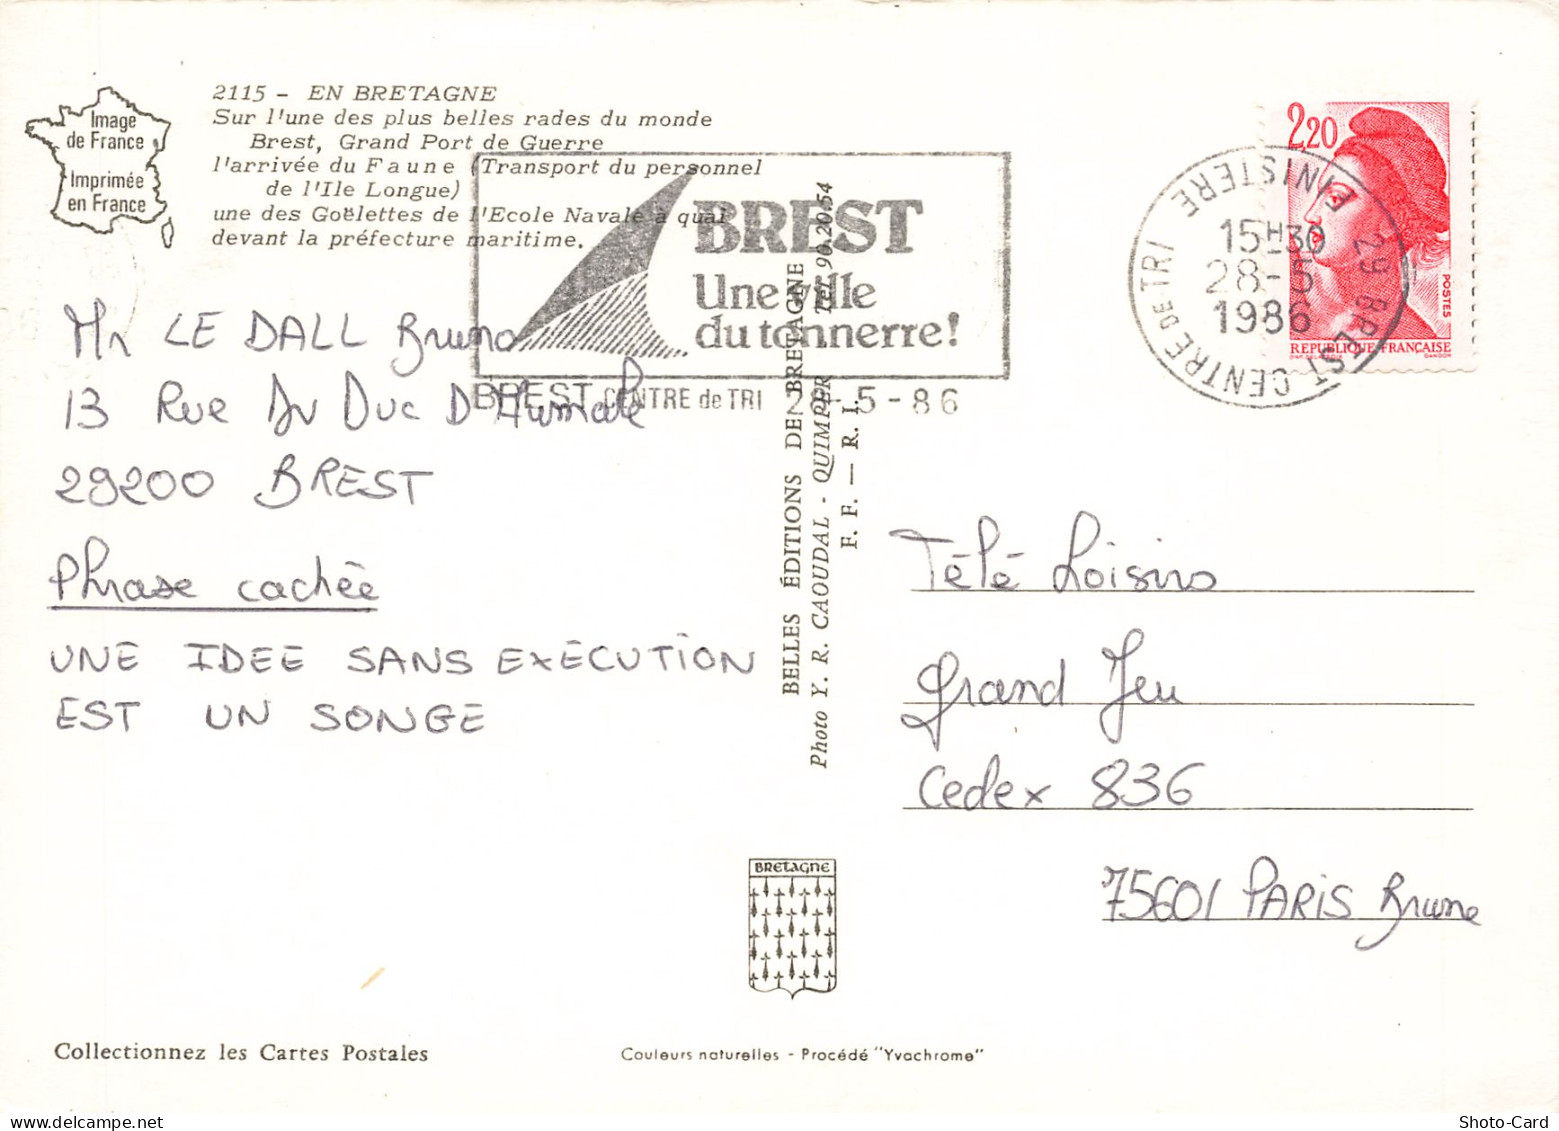 2115 - EN BRETAGNE
Sur l'une des plus belles rades du monde
Brest, Grand Port de Guerre
l'arrivée du Faune (Transport du personnel
de l'Ile Longue)
une des Goëlettes de l'Ecole Navale à quai
devant la préfecture maritime.
Image
de France
Imprimée
en France
BREST
Une ville
du tonnerre!
BREST CENTRE de TRI 28-5-86
2,20
POSTES
REPUBLIQUE FRANÇAISE
GANDON
29 BREST CENTRE DE TRI FINISTERE
15H30
28-5
1986
Mr LE DALL Bruno
13 Rue Du Duc D'Aumale
29200 BREST
Phrase cachée
UNE IDEE SANS EXECUTION
EST UN SONGE
BELLES ÉDITIONS DE BRETAGNE
Photo Y. R. CAOUDAL - QUIMPER Tél. 90.20.54
F. F. — R. I.
Télé Loisirs
Grand Jeu
Cedex 836
75601 PARIS Brune
BRETAGNE
Collectionnez les Cartes Postales
Couleurs naturelles - Procédé "Yvachrome"
Shoto-Card